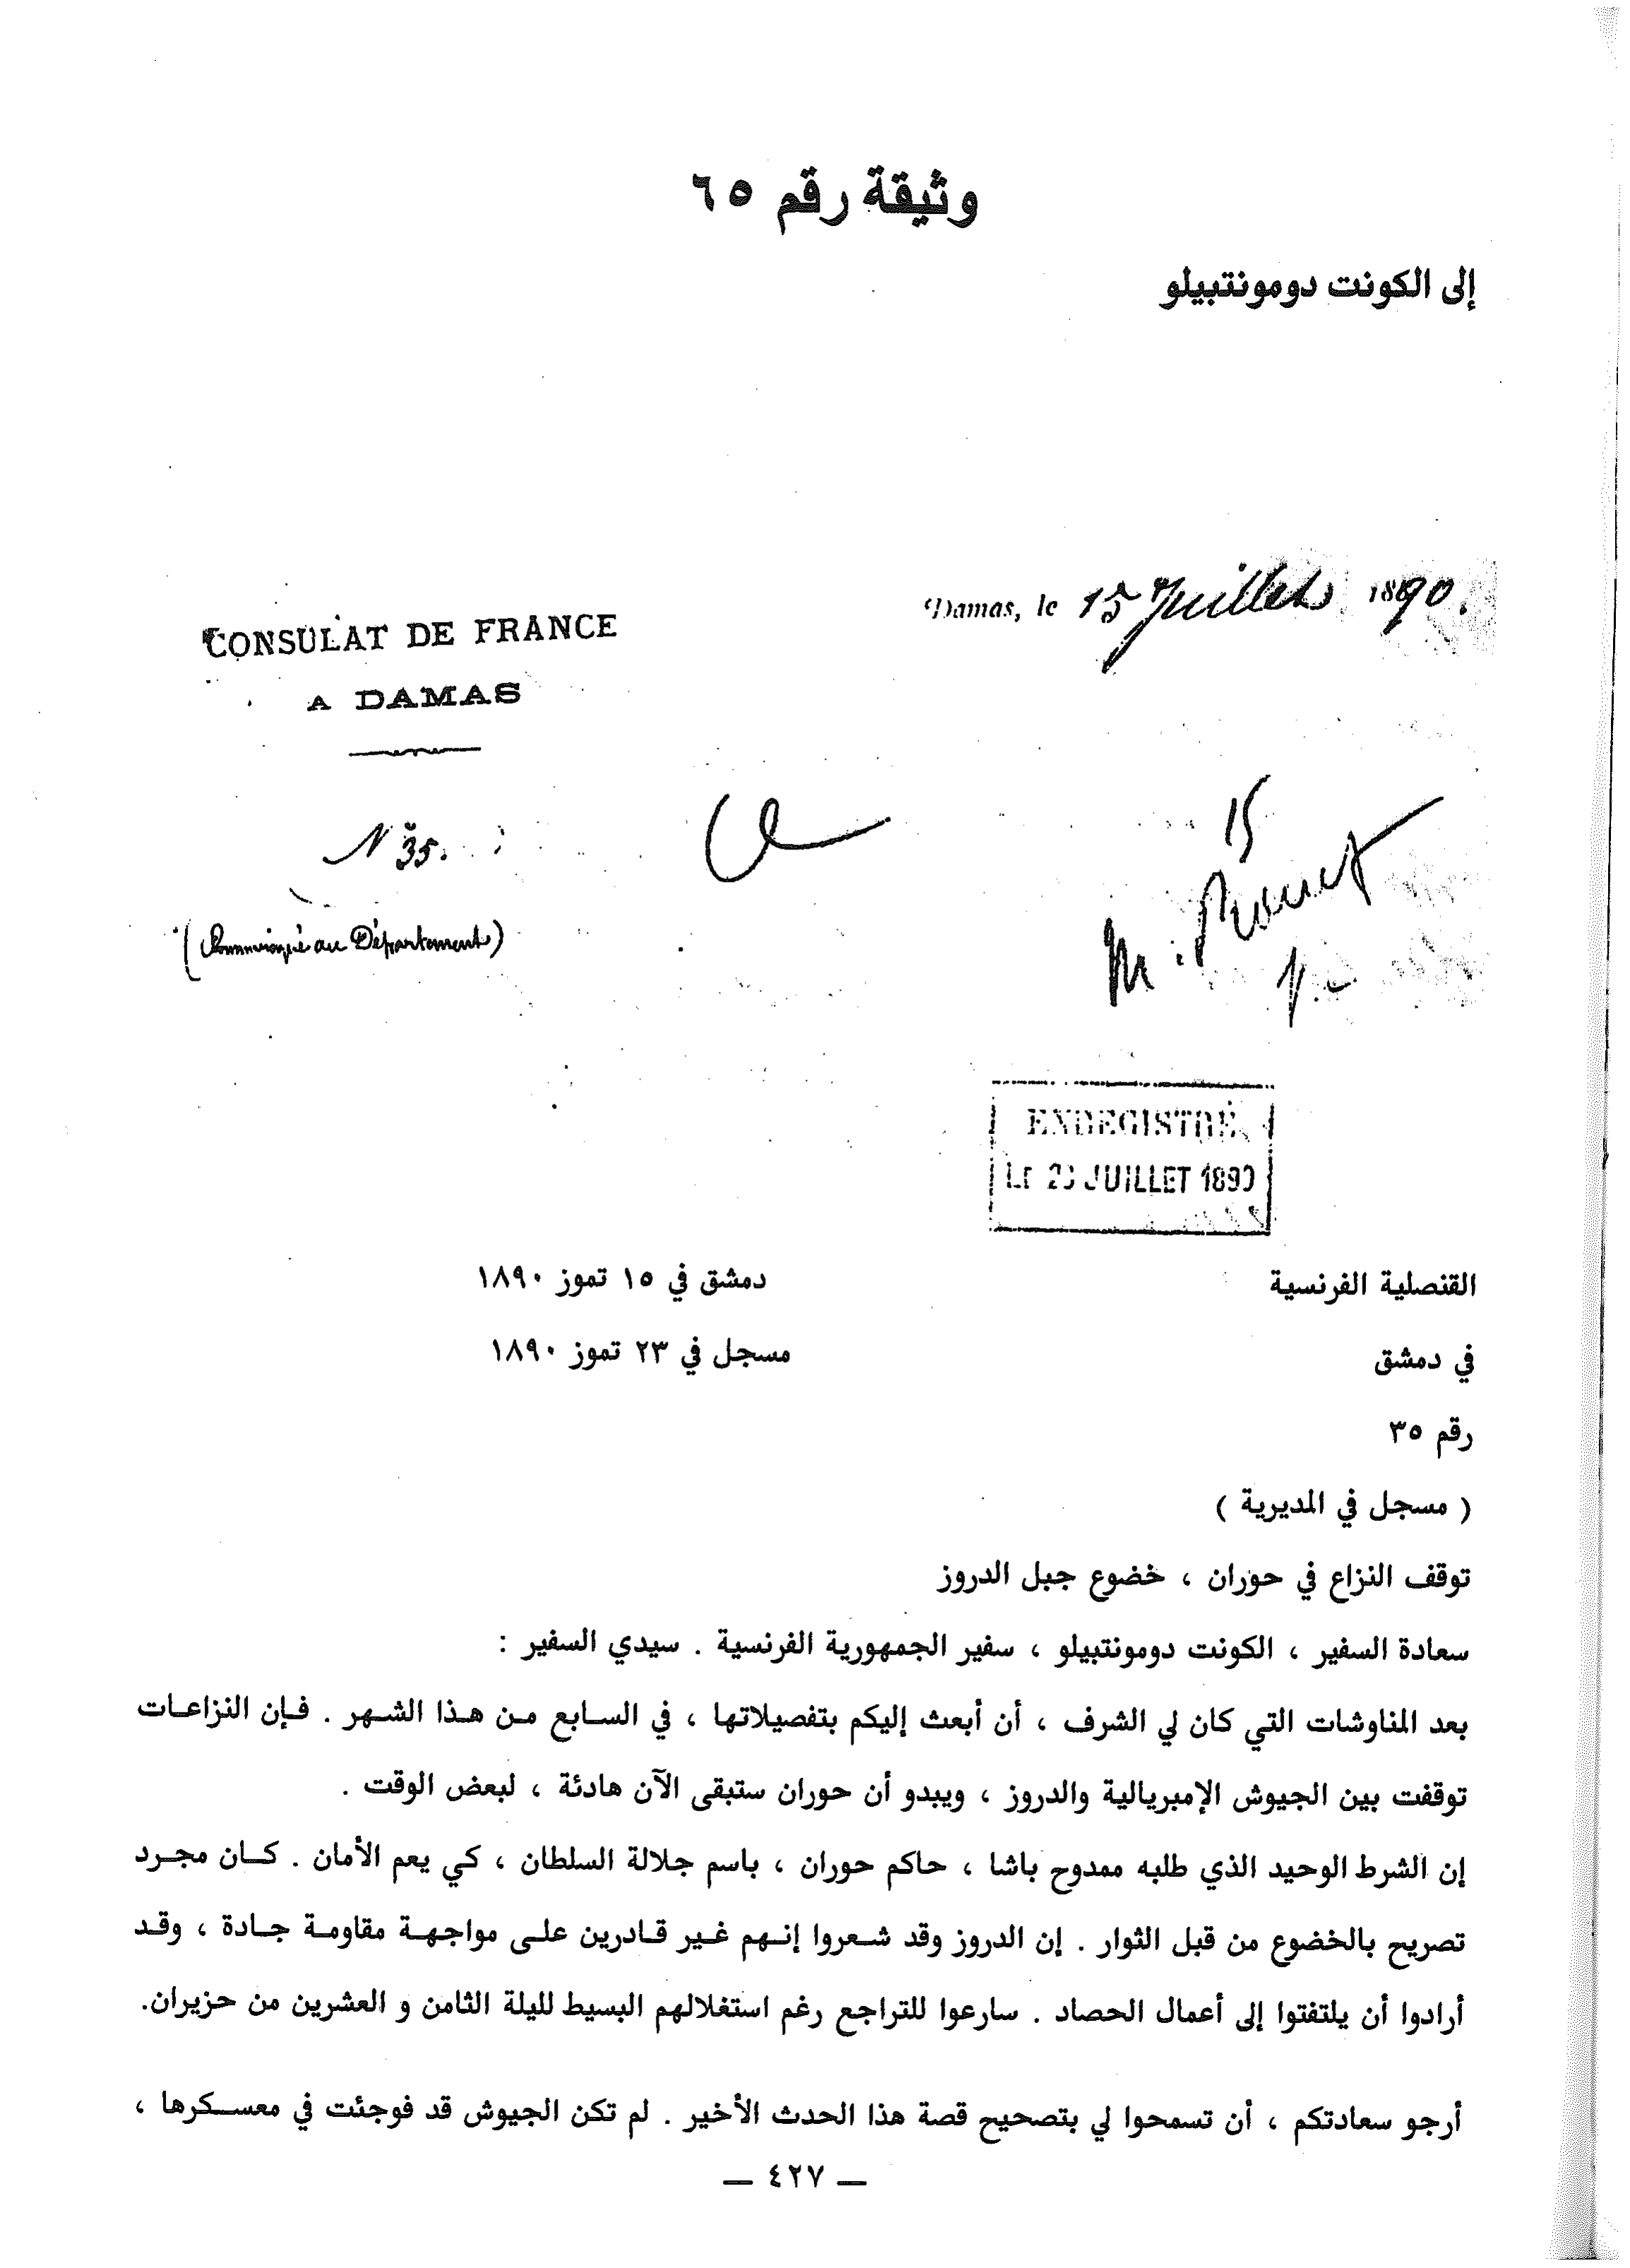 وثيقة رقم ٦٥
إلى الكونت دومونتبيلو
Damas, le 15 Juillet 1890.
CONSULAT DE FRANCE
A DAMAS
N 35.
15
M.
(Communiqué au Département)
ENREGISTRÉ
LE 23 JUILLET 1890
القنصلية الفرنسية
دمشق في ١٥ تموز ١٨٩٠
في دمشق
مسجل في ٢٣ تموز ١٨٩٠
رقم ٣٥
( مسجل في المديرية )
توقف النزاع في حوران ، خضوع جبل الدروز
سعادة السفير ، الكونت دومونتبيلو ، سفير الجمهورية الفرنسية . سيدي السفير :
بعد المناوشات التي كان لي الشرف ، أن أبعث إليكم بتفصيلاتها ، في السابع من هذا الشهر . فإن النزاعات
توقفت بين الجيوش الإمبريالية والدروز ، ويبدو أن حوران ستبقى الآن هادئة ، لبعض الوقت .
إن الشرط الوحيد الذي طلبه ممدوح باشا ، حاكم حوران ، باسم جلالة السلطان ، كي يعم الأمان . كان مجرد
تصريح بالخضوع من قبل الثوار . إن الدروز وقد شعروا إنهم غير قادرين على مواجهة مقاومة جادة ، وقد
أرادوا أن يلتفتوا إلى أعمال الحصاد . سارعوا للتراجع رغم استغلالهم البسيط لليلة الثامن و العشرين من حزيران.
أرجو سعادتكم ، أن تسمحوا لي بتصحيح قصة هذا الحدث الأخير . لم تكن الجيوش قد فوجئت في معسكرها ،
— ٤٢٧ —